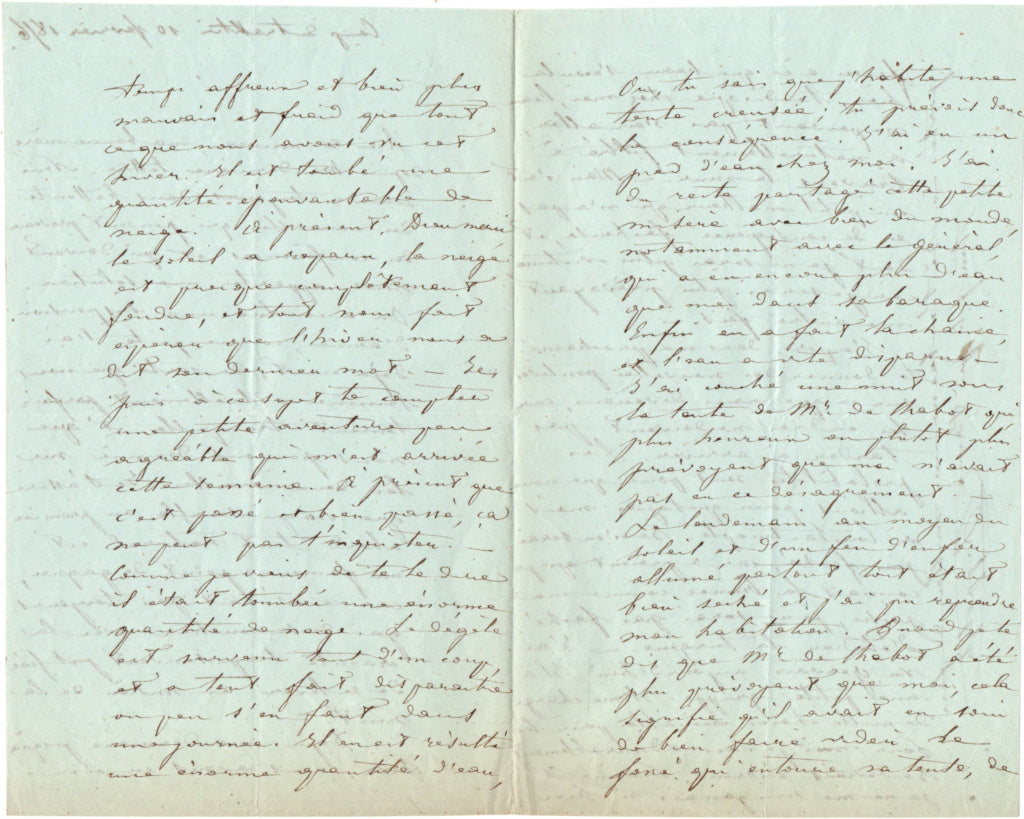 temps affreux et bien plus
mauvais et froid que tout
ce que nous avons vu cet
hiver. Il est tombé une
quantité épouvantable de
neige. A présent, Dieu merci
le soleil a reparu, la neige
est presque complètement
fondue, et tout nous fait
espérer que l'hiver nous a
dit son dernier mot. — Je
puis à ce sujet te compter
une petite aventure peu
agréable qui m'est arrivée
cette semaine. A présent que
c'est passé et bien passé, ça
ne peut pas t'inquiéter. —
Comme je viens de te le dire
il était tombé une énorme
quantité de neige. Le dégèle
est survenu tout d'un coup,
et a tout fait disparaitre
ou peu s'en faut dans
une journée. Il en est résulté
une énorme quantité d'eau,
Or, tu sais que j'habite une
tente creusée; tu prévois donc
la conséquence. J'ai eu un
pied d'eau chez moi. J'ai
du reste partagé cette petite
misère avec bien du monde,
notamment avec le général,
qui a eu encore plus d'eau
que moi dans sa baraque.
Enfin on a fait la chaine,
et l'eau a vite disparu. —
J'ai couché une nuit sous
la tente de Mr de Chabot qui
plus heureux ou plutôt plus
prévoyant que moi n'avait
pas eu ce désagrément. —
Le lendemain au moyen du
soleil et d'un feu d'enfer
allumé partout tout était
bien séché et j'ai pu reprendre
mon habitation. Quand je te
dis que Mr de Chabot a été
plus prévoyant que moi, cela
signifie qu'il avait eu soin
de bien faire vider le
fossé qui entoure sa tente, de